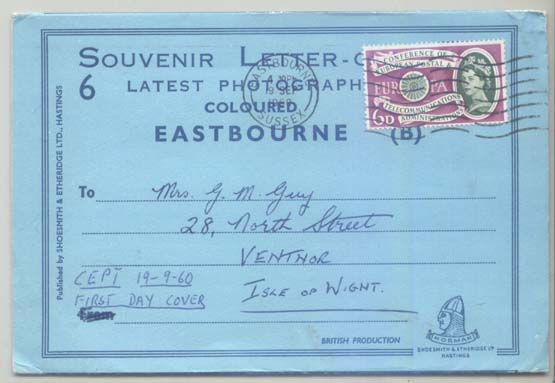 SOUVENIR LETTER-C
6 LATEST PHOTOGRAPH
COLOURED
EASTBOURNE (B)
CONFERENCE OF
EUROPEAN POSTAL &
EUROPA
TELECOMMUNICATIONS
ADMINISTRATIONS
6D
EASTBOURNE
19 SEP
1960
SUSSEX
Published by SHOESMITH & ETHERIDGE LTD., HASTINGS
To Mrs. G. M. Guy
28, North Street
VENTNOR
ISLE OF WIGHT.
CEPT 19-9-60
FIRST DAY COVER
From
BRITISH PRODUCTION
NORMAN
SHOESMITH & ETHERIDGE LTD
HASTINGS